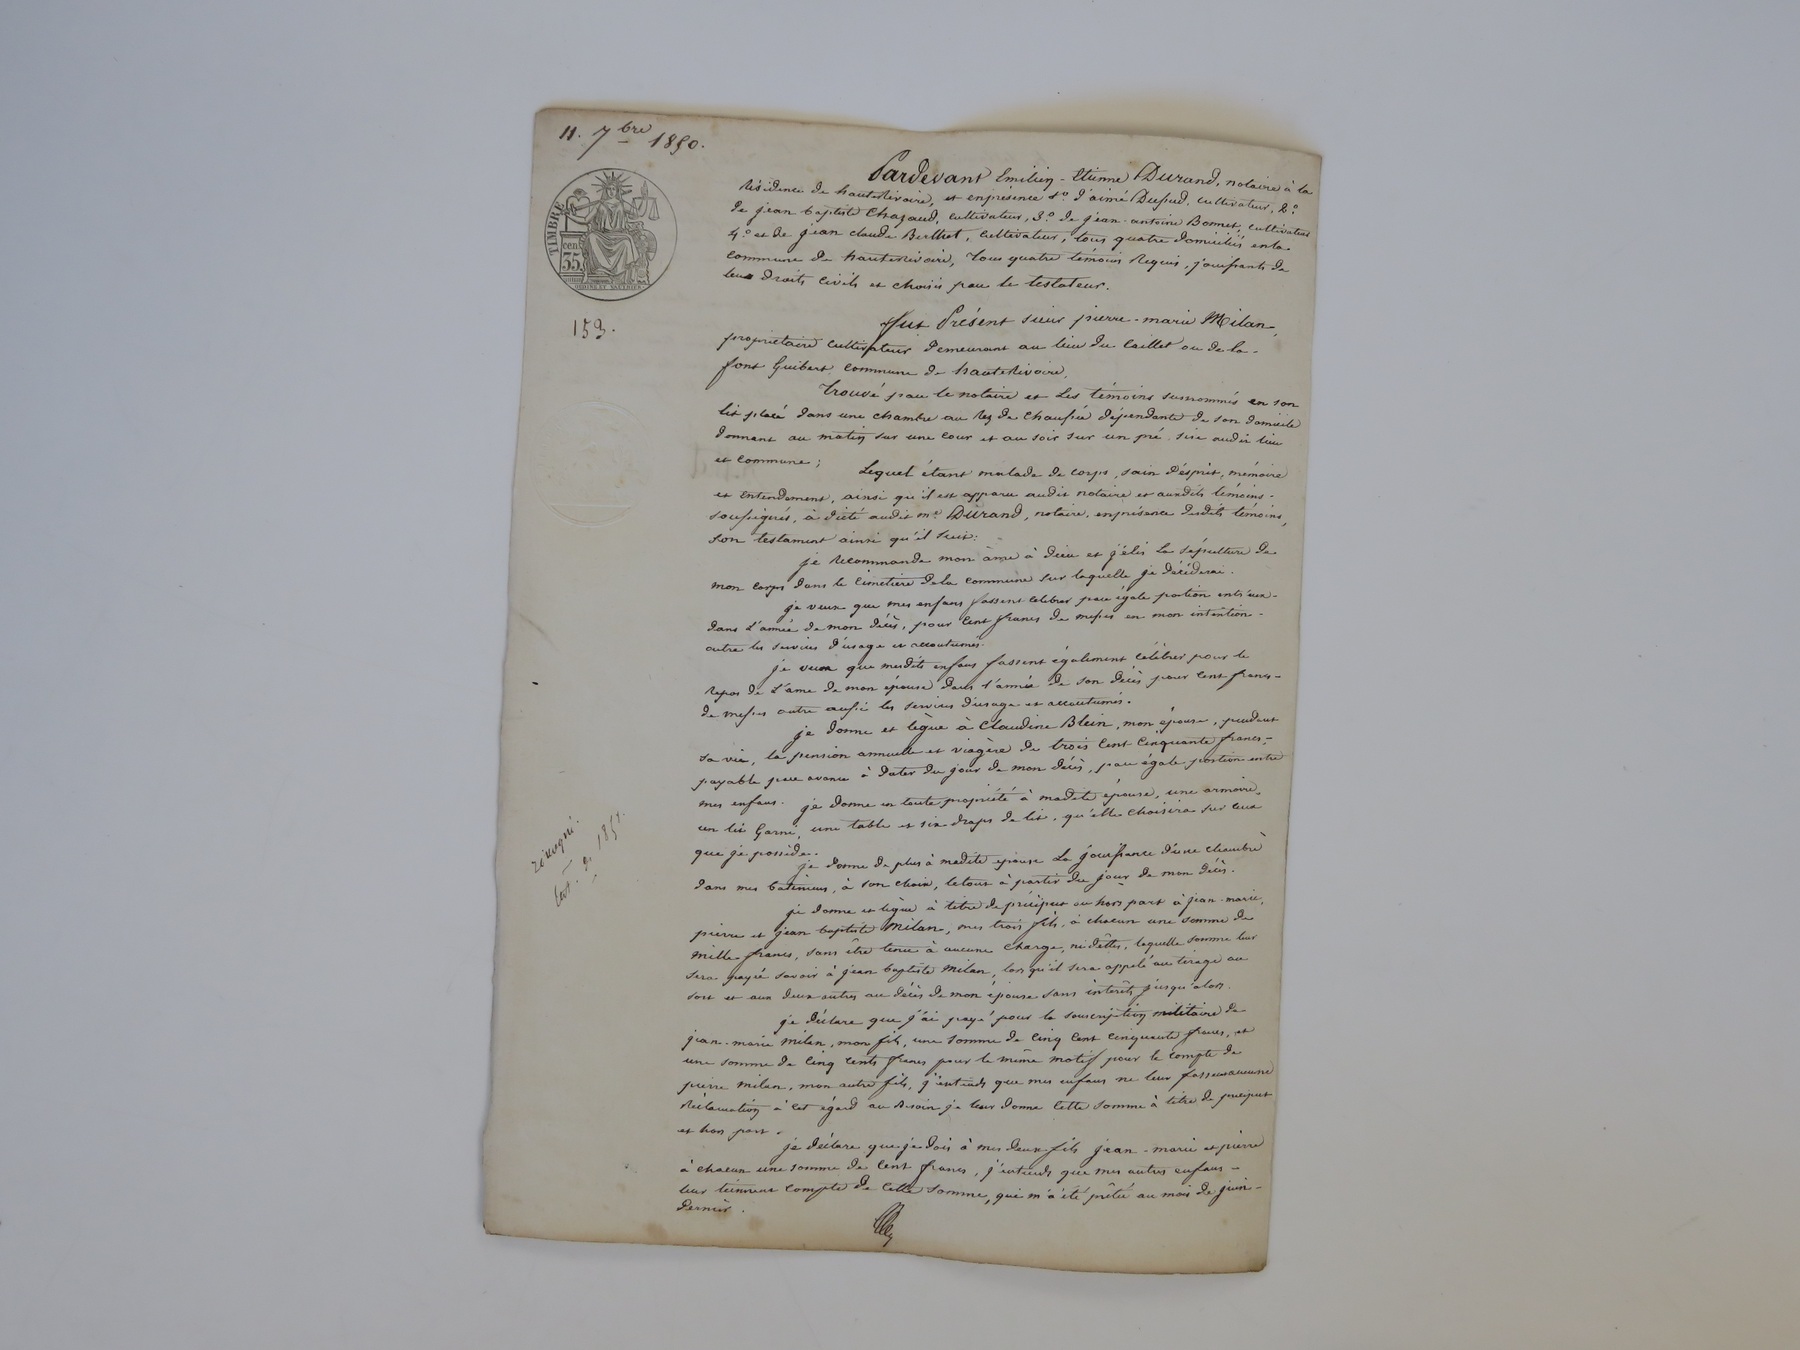 11. 7bre 1850.
TIMBRE
cen
35
153.
Pardevant Emilien-Etienne Durand, notaire à la
Résidence de hauteRivoire, et enprésence 1o d'aimé Dupud, cultivateur, 2.o
de jean baptiste Chazaud, cultivateur, 3.o de jean-antoine Bonnet, cultivateur
4.o et de jean claude Berthet, cultivateur, tous quatre domiciliés enla
commune de hauteRivoire, tous quatre témoins Requis, jouissants de
leurs droits civils et choisis par le testateur.
fut Présent sieur pierre-marie Milan,
propriétaire cultivateur demeurant au lieu du Caillet ou de la
font Guibert commune de hauteRivoire,
trouvé par le notaire et Les témoins susnommés en son
lit placé dans une chambre au Rez de chaussée dépendante de son domicile
donnant au matin sur une cour et au soir sur un pré sise audit lieu
et commune; Lequel étant malade de corps, sain d'esprit, mémoire
et Entendement, ainsi qu'il est apparu audit notaire et auxdits témoins
soussignés, à dicté audit me Durand, notaire, enprésence desdits témoins,
son testament ainsi qu'il suit:
je Recommande mon âme à dieu et j'élis La sépulture de
mon corps dans le Cimetière dela commune sur laquelle je décéderai.
je veux que mes enfans fassent célébrer par égale portion entr'eux
dans L'année de mon décès, pour Cent francs de messes en mon intention
outre les services d'usage et accoutumés.
je veux que mesdits enfans fassent également célébrer pour le
Repos de L'ame de mon épouse dans l'année de son décès pour Cent francs
de messes outre aussi les services d'usage et accoutumés.
je donne et lègue à Claudine Blein, mon épouse, pendant
sa vie, la pension annuelle et viagère de trois Cent Cinquante francs,
payable par avance à dater du jour de mon décès, par égale portion entre
mes enfans. je donne en toute propriété à madite épouse, une armoire,
un lit Garni, une table et six draps de lit, qu'elle choisira sur ceux
que je possède.
je donne de plus à madite épouse La jouissance d'une chambre
dans mes batimens, à son choix, letout à partir du jour de mon décès.
je donne et lègue à titre de préciput ou hors part à jean-marie,
pierre et jean baptiste Milan, mes trois fils, à chacun une somme de
mille francs, sans être tenus à aucune charge, ni dettes, laquelle somme leur
sera payée savoir à jean baptiste Milan, lorsqu'il sera appelé au tirage au
sort et aux deux autres au décès de mon épouse sans intérêts jusqu'alors.
je déclare que j'ai payé pour la souscription militaire de
jean-marie Milan, mon fils, une somme de Cinq Cent Cinquante francs, et
une somme de Cinq Cents francs pour le même motif pour le compte de
pierre Milan, mon autre fils, j'entends que mes enfans ne leur fassent aucune
Réclamation à cet égard au Besoin je leur donne cette somme à titre de préciput
et hors part.
je déclare que je dois à mes deux fils jean-marie et pierre
à chacun une somme de Cent francs, j'entends que mes autres enfans
leur tiennent compte de cette somme, qui m'a été prêtée au mois de juin
dernier.
test. de 1851.